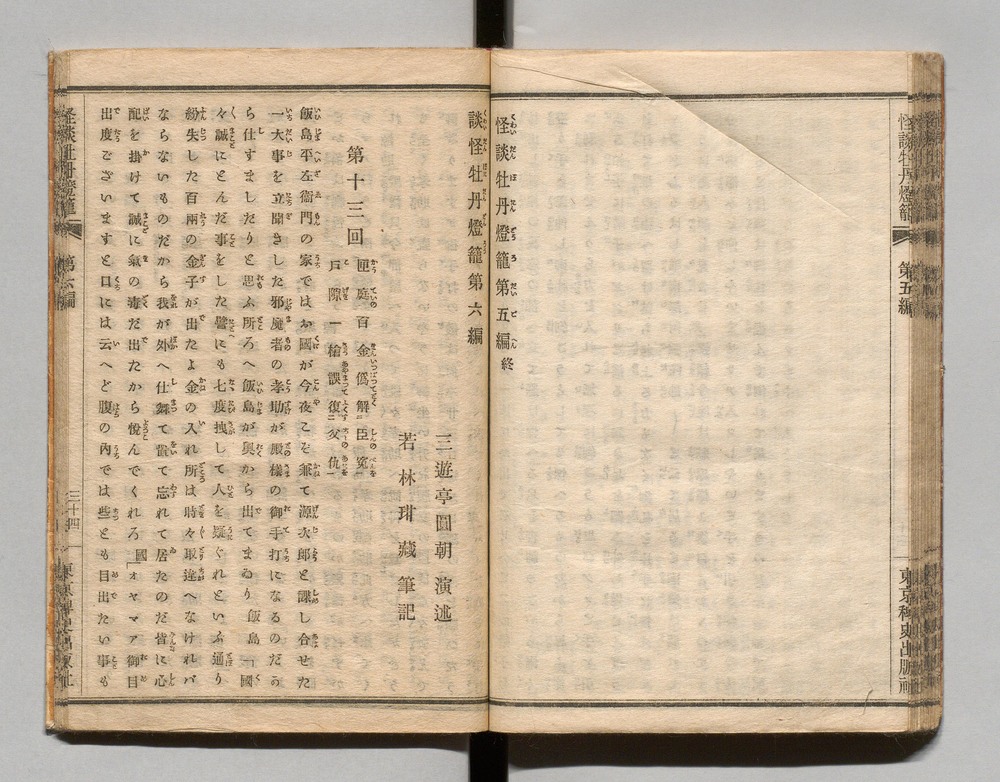 怪談牡丹燈籠
第五編
東京稗史出版社
怪談牡丹燈籠第五編終
談怪牡丹燈籠第六編
三遊亭圓朝演述
若林玵藏筆記
第十三回
匣庭百金僞解臣寃
戸隙一槍誤復父仇
飯島平左衞門の家ではお國が今夜こそ兼て源次郎と諜し合せた
一大事を立聞きした邪魔者の孝助が殿様の御手打になるのだう
ら仕すましたりと思ふ所へ飯島が奥から出てまゐり 飯島「國
々誠にとんだ事をした譬にも七度捜して人を疑ぐれといふ通り
紛失した百兩の金子が出たよ金の入れ所は時々取違へなけれバ
ならないものだから我が外へ仕舞て置て忘れて居たのだ皆に心
配を掛けて誠に氣の毒だ出たから悦んでくれろ 國「オヤマア御目
出度ございますと口には云へど腹の内では些とも目出たい事も
怪談牡丹燈籠
第六編
三十四
東京稗史出版社